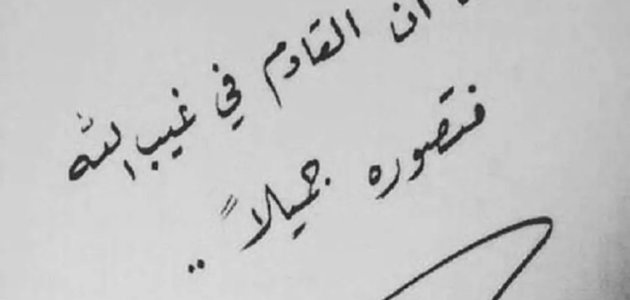 أن القادم في غيب الله
فتصوره جميلاً ..